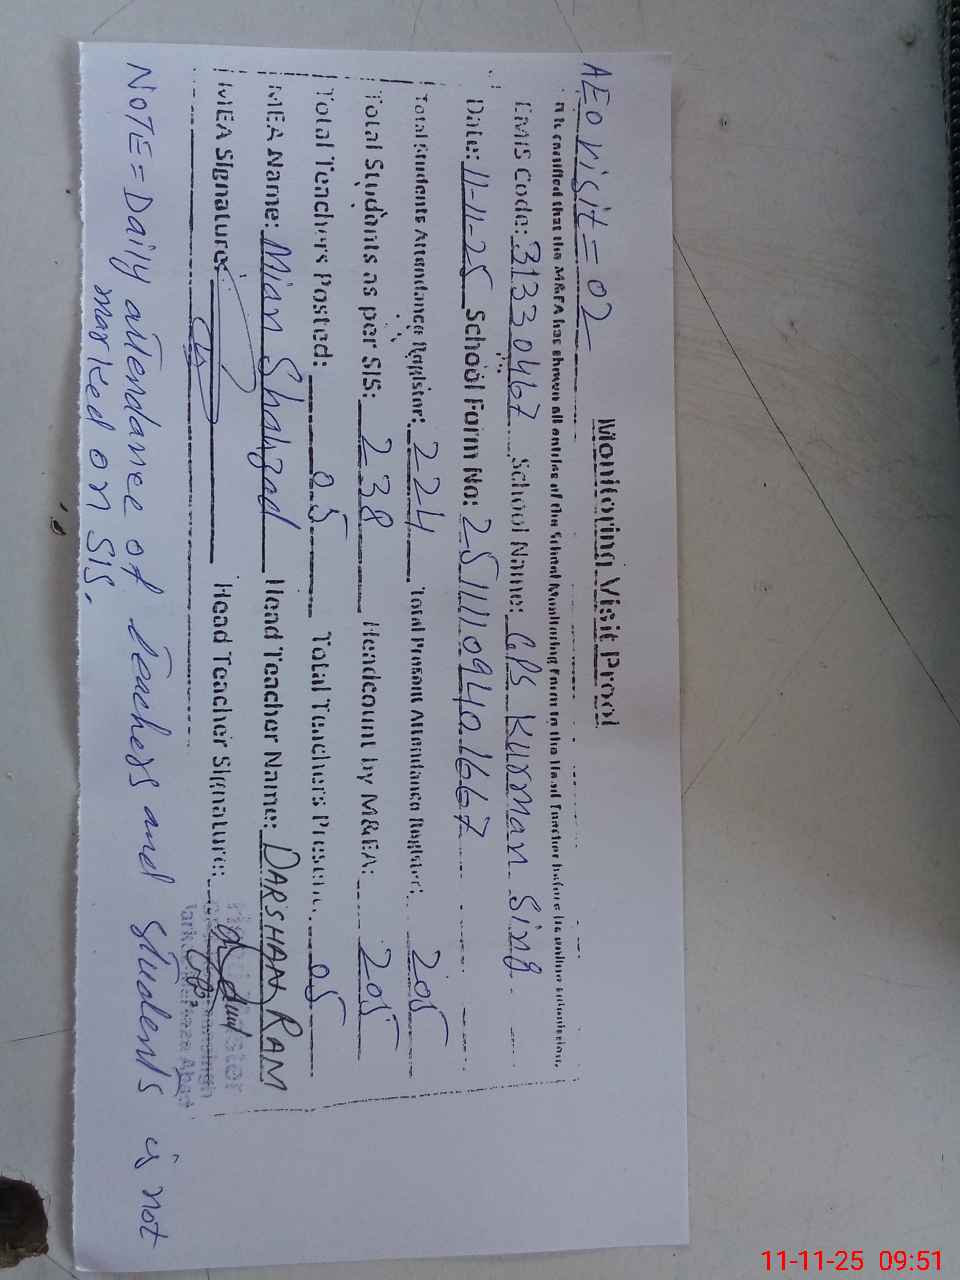 Monitoring Visit Proof
AEO visit = 02
It is certified that the M&EA has shown all entries of the School Monitoring Form to the Head Teacher before its online submission.
EMIS Code: 31330467 School Name: GPS Kurman Sing
Date: 11-11-25 School Form No: 25111109401667
Total Students Attendance Register: 224 Total Present Attendance Register: 205
Total Students as per SIS: 238 Headcount by M&EA: 205
Total Teachers Posted: 05 Total Teachers Present: 05
MEA Name: Mian Shahzad Head Teacher Name: DARSHAN RAM
MEA Signature: Head Teacher Signature:
NOTE = Daily attendance of teachers and students is not
marked on SIS.
11-11-25 09:51